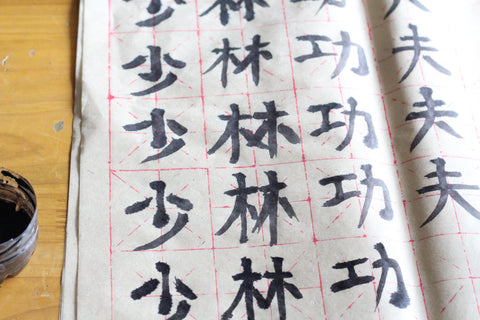 少林
少林功夫
少林功夫
少林功夫
少林功